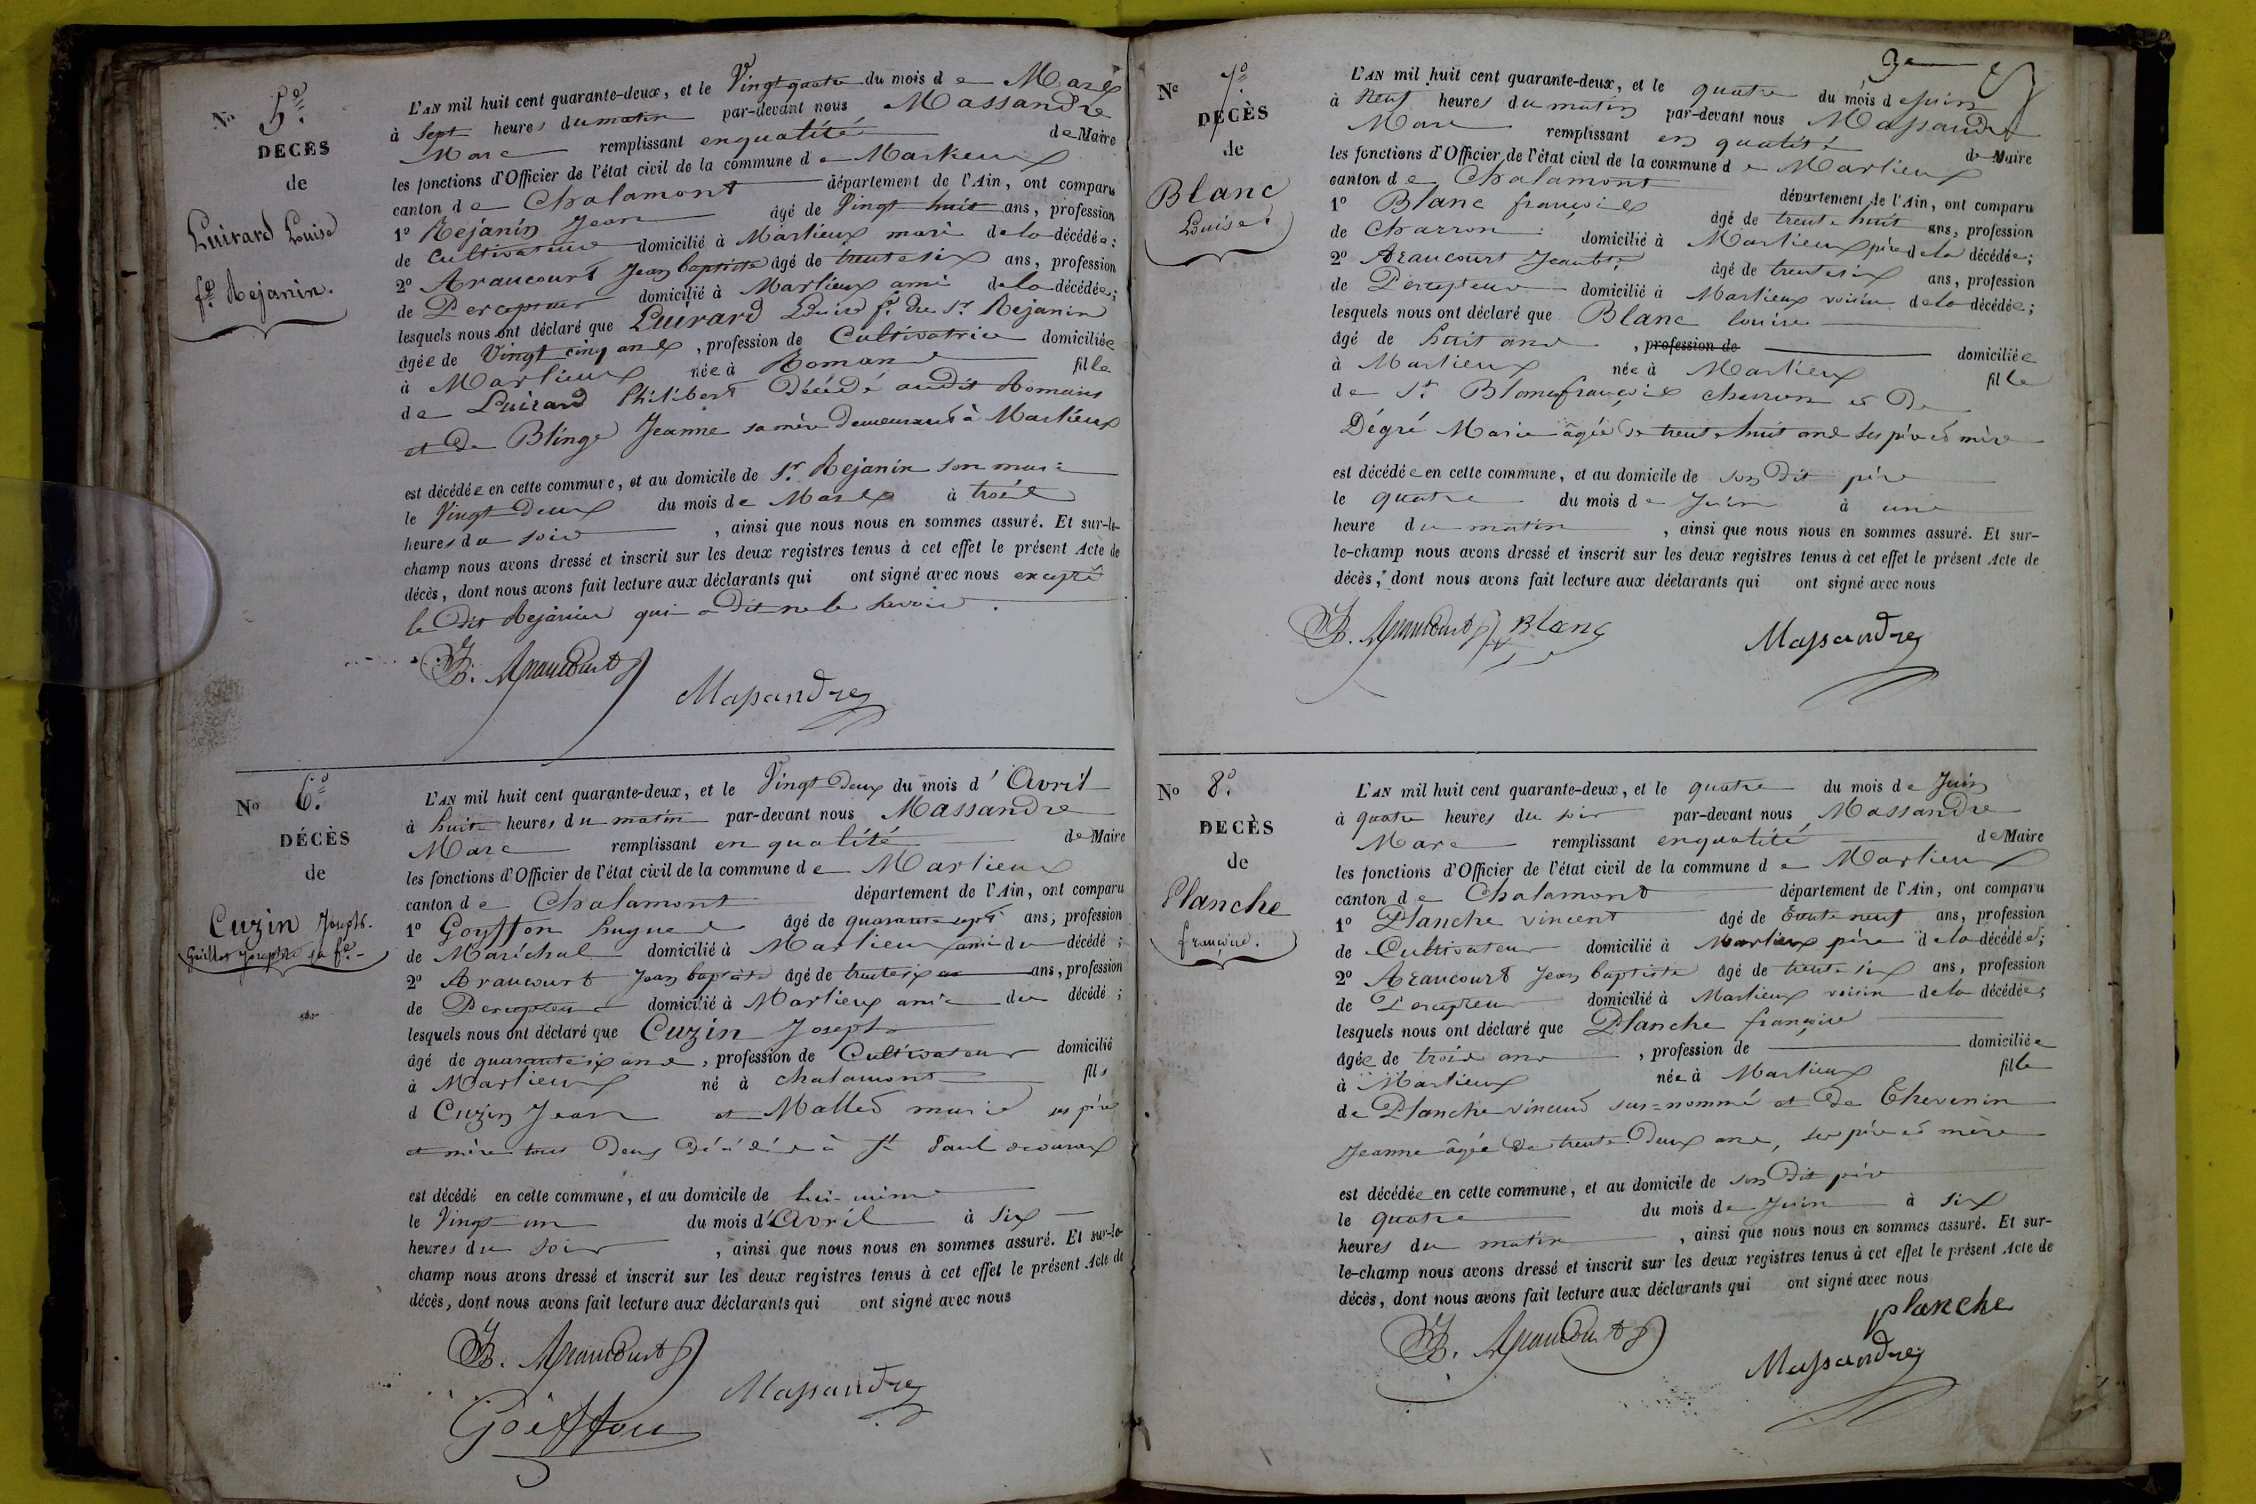 No 5.e
DECES
de
Luirard Louise
fe Rejanin.
L'AN mil huit cent quarante-deux, et le Vingt quatre du mois de Mars
à Sept heures du matin par-devant nous Massandre
Marc remplissant en qualité de Maire
les fonctions d'Officier de l'état civil de la commune de Marlieux
canton de Chalamont département de l'Ain, ont comparu
1º Rejanin Jean âgé de Vingt huit ans, profession
de Cultivateur domicilié à Marlieux mari de la décédée;
2º Araucourt Jean baptiste âgé de trente six ans, profession
de Percepteur domicilié à Marlieux ami de la décédée;
lesquels nous ont déclaré que Luirard Louise fe du Sr Rejanin
âgée de Vingt cinq ans, profession de Cultivatrice domiciliée
à Marlieux née à Romans fille
de Luirard Philibert Décédé audit Romans
et de Blinge Jeanne sa mère Demeurant à Marlieux
est décédée en cette commune, et au domicile de Sr Rejanin son mari
le Vingt Deux du mois de Mars à trois
heures du soir, ainsi que nous nous en sommes assuré. Et sur-le-
champ nous avons dressé et inscrit sur les deux registres tenus à cet effet le présent Acte de
décès, dont nous avons fait lecture aux déclarants qui ont signé avec nous excepté
le dit Rejanin qui a Dit ne le savoir.
JB. Araucourt
Massandre
No 6.e
DÉCÈS
de
Cuzin Joseph.
L'AN mil huit cent quarante-deux, et le Vingt Deux du mois d'Avril
à huit heures du matin par-devant nous Massandre
Marc remplissant en qualité de Maire
les fonctions d'Officier de l'état civil de la commune de Marlieux
canton de Chalamont département de l'Ain, ont comparu
1º Goyffon hugues âgé de quarante sept ans, profession
de Maréchal domicilié à Marlieux ami du décédé;
2º Araucourt Jean baptiste âgé de trente six ans, profession
de Percepteur domicilié à Marlieux ami du décédé;
lesquels nous ont déclaré que Cuzin Joseph
âgé de quarante six ans, profession de Cultivateur domicilié
à Marlieux né à Chalamont fils
d Cuzin Jean et Mallet marie ses père
et mère tous Deux Décédés à St Paul
est décédé en cette commune, et au domicile de lui-même
le Vingt un du mois d'Avril à Six
heures du soir, ainsi que nous nous en sommes assuré. Et sur-le-
champ nous avons dressé et inscrit sur les deux registres tenus à cet effet le présent Acte de
décès, dont nous avons fait lecture aux déclarants qui ont signé avec nous
JB. Araucourt
Massandre
Goiffon
3e
No 7.o
DECÈS
de
Blanc
Louise.
L'AN mil huit cent quarante-deux, et le quatre du mois de Juin
à Neuf heures du matin par-devant nous Massandre
Marc remplissant en qualité de Maire
les fonctions d'Officier de l'état civil de la commune de Marlieux
canton de Chalamont département de l'Ain, ont comparu
1º Blanc françois âgé de trente huit ans, profession
de Charron domicilié à Marlieux père de la décédée;
2º Araucourt Jean bte âgé de trente six ans, profession
de Percepteur domicilié à Marlieux voisin de la décédée;
lesquels nous ont déclaré que Blanc louise
âgé de huit ans, profession de domiciliée
à Marlieux née à Marlieux fille
de Sr Blanc françois charron et De
Dégré Marie âgée de trente huit ans ses père et mère
est décédée en cette commune, et au domicile de son Dit père
le quatre du mois de Juin à une
heure du matin, ainsi que nous nous en sommes assuré. Et sur-
le-champ nous avons dressé et inscrit sur les deux registres tenus à cet effet le présent Acte de
décès, dont nous avons fait lecture aux déclarants qui ont signé avec nous
JB. Araucourt Blanc
Massandre
No 8.o
DECÈS
de
Planche
françoise.
L'AN mil huit cent quarante-deux, et le quatre du mois de Juin
à quatre heures du soir par-devant nous Massandre
Marc remplissant en qualité de Maire
les fonctions d'Officier de l'état civil de la commune de Marlieux
canton de Chalamont département de l'Ain, ont comparu
1º Planche vincent âgé de trente neuf ans, profession
de Cultivateur domicilié à Marlieux père de la décédée;
2º Araucourt Jean baptiste âgé de trente six ans, profession
de Percepteur domicilié à Marlieux voisin de la décédée;
lesquels nous ont déclaré que Planche françoise
âgée de trois ans, profession de domiciliée
à Marlieux née à Marlieux fille
de Planche vincent sus-nommé et de Thevenin
Jeanne âgée de trente Deux ans, ses père et mère
est décédée en cette commune, et au domicile de son Dit père
le quatre du mois de Juin à six
heures du matin, ainsi que nous nous en sommes assuré. Et sur-
le-champ nous avons dressé et inscrit sur les deux registres tenus à cet effet le présent Acte de
décès, dont nous avons fait lecture aux déclarants qui ont signé avec nous
planche
JB. Araucourt
Massandre